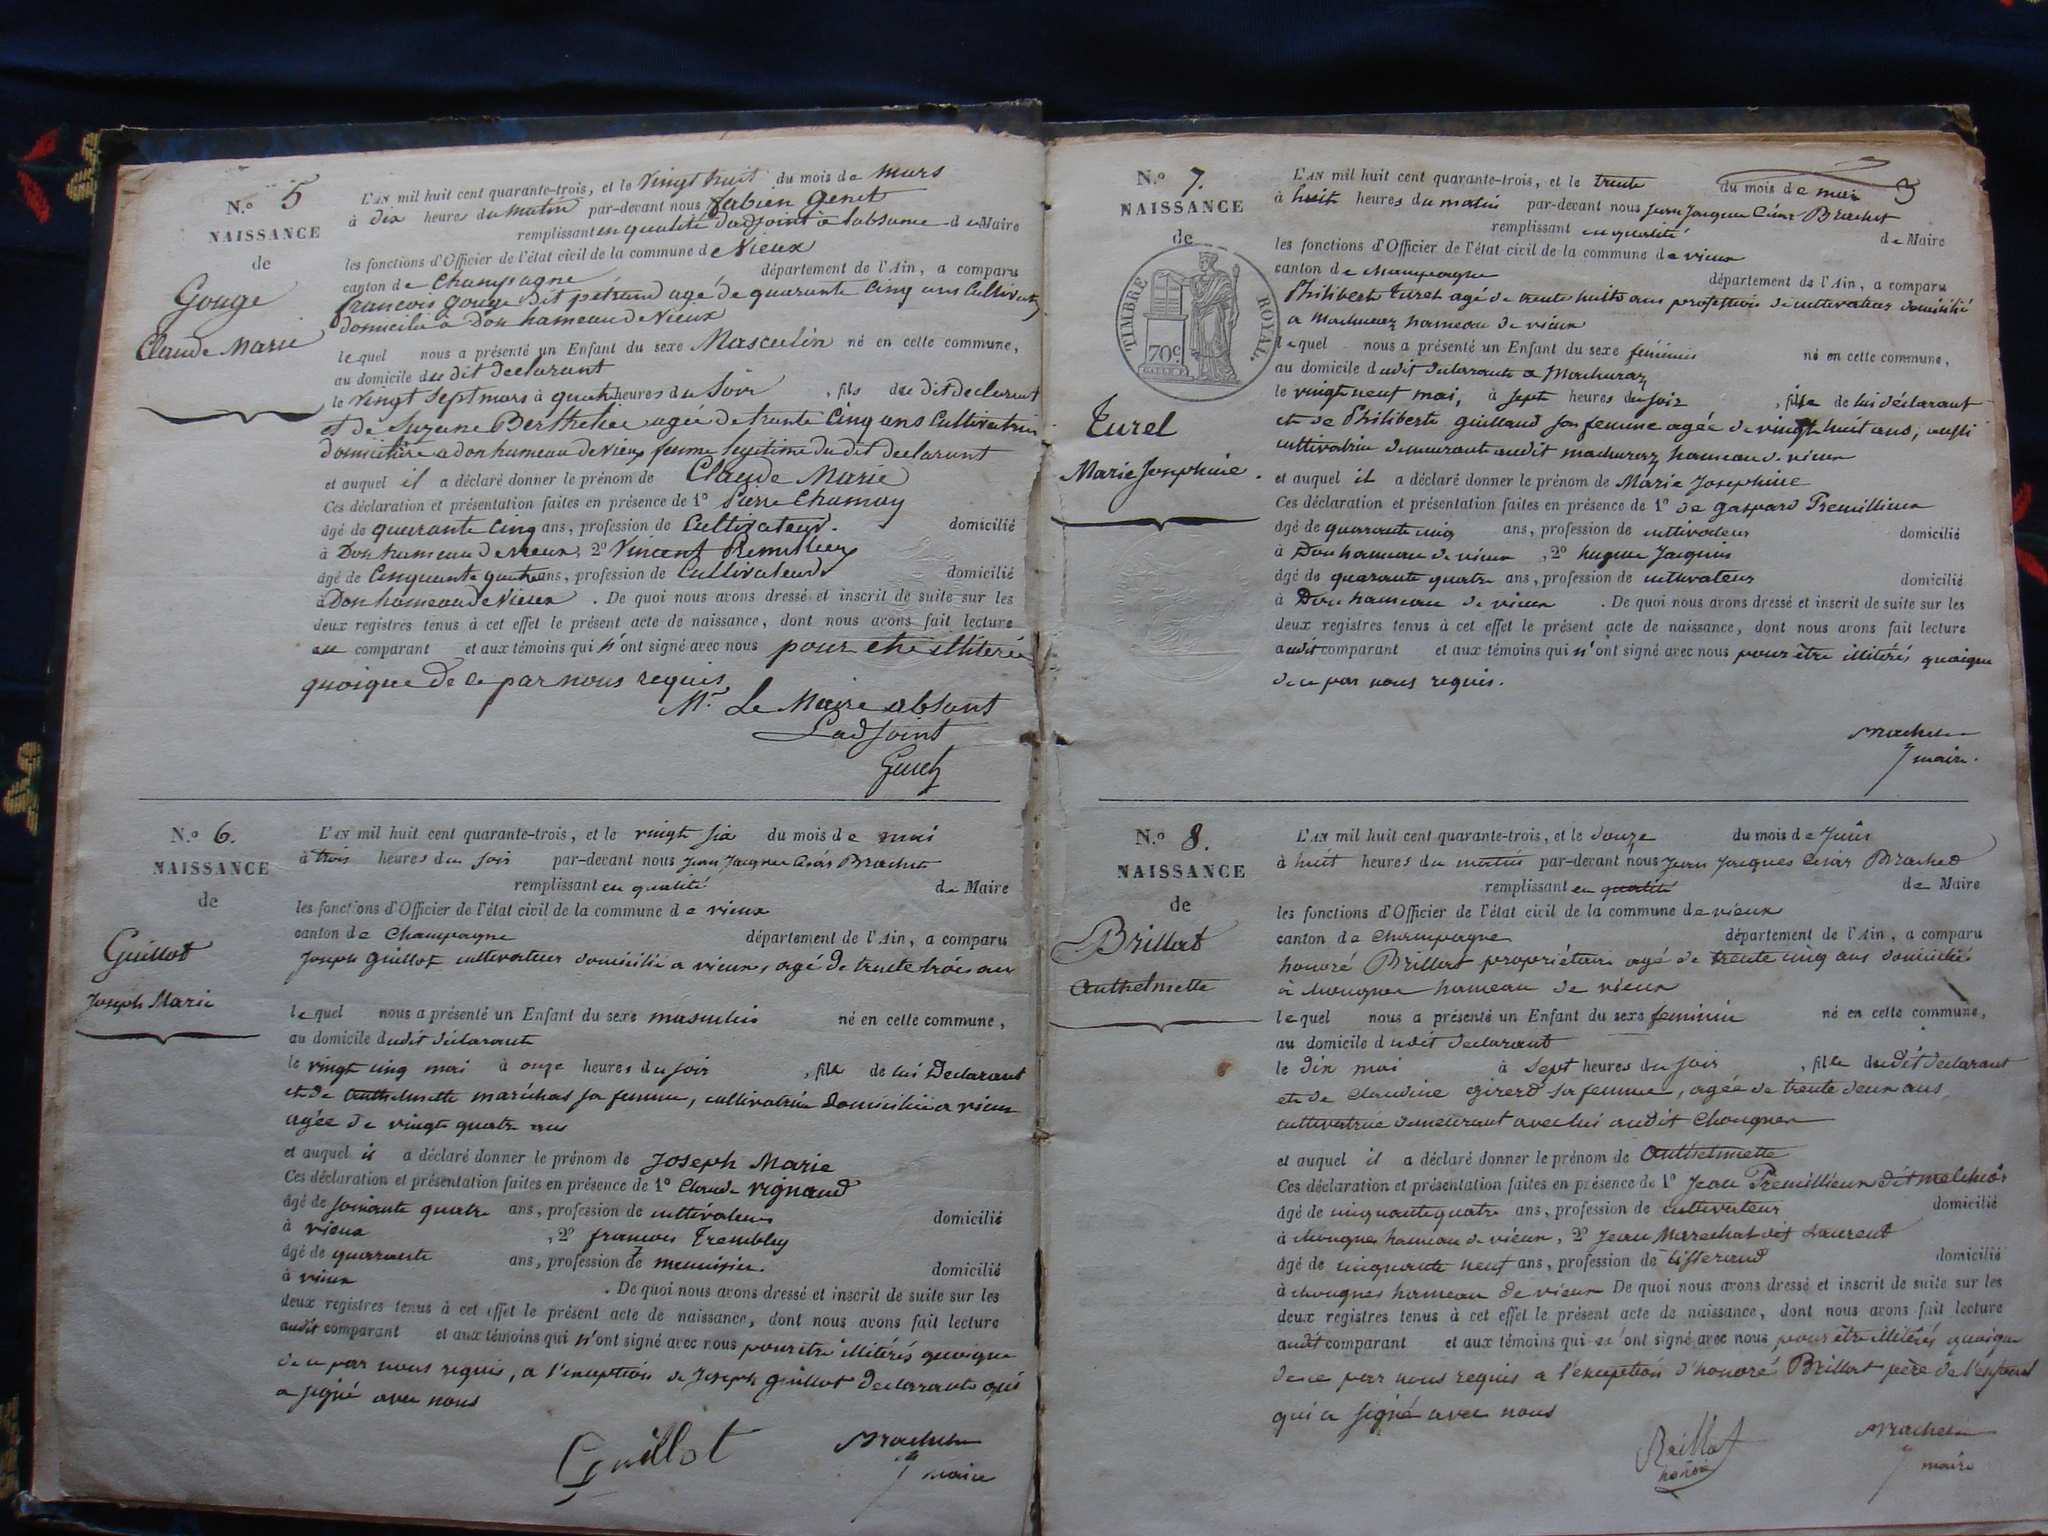 N.º 5
NAISSANCE
de
Gouge
Claude Marie
L'AN mil huit cent quarante-trois, et le vingt huit du mois de mars
à dix heures du matin par-devant nous fabien Genet
remplissant en qualité d'adjoint a labsance de Maire
les fonctions d'Officier de l'état civil de la commune de Vieux
canton de Champagne département de l'Ain, a comparu
francois gouge dit pétrand agé de quarante cinq ans Cultivateur
domicilié a Don hameau de Vieux
lequel nous a présenté un Enfant du sexe Masculin né en cette commune,
au domicile du dit declarant
le vingt sept mars à quatre heures du Soir, fils du dit declarant
et de Suzane Berthelier agée de trante cinq ans Cultivatrice
domiciliée a don hameau de Vieux femme legitime du dit declarant
et auquel il a déclaré donner le prénom de Claude Marie
Ces déclaration et présentation faites en présence de 1º Pierre Chamay
âgé de quarante cinq ans, profession de Cultivateur. domicilié
à Don hameau de vieux, 2º Vincent
âgé de Cinquante quatre ans, profession de Cultivateur domicilié
à Don hameau de Vieux. De quoi nous avons dressé et inscrit de suite sur les
deux registres tenus à cet effet le présent acte de naissance, dont nous avons fait lecture
au comparant et aux témoins qui n'ont signé avec nous pour etre illiteré
quoique de ce par nous requis
Mr Le Maire absant
Ladjoint
Genet
N.º 6.
NAISSANCE
de
Guillot
Joseph Marie
L'AN mil huit cent quarante-trois, et le vingt six du mois de mai
à trois heures du soir par-devant nous Jean Jacques César Brachet
remplissant en qualité de Maire
les fonctions d'Officier de l'état civil de la commune de vieux
canton de Champagne département de l'Ain, a comparu
Joseph Guillot cultivateur domicilié a vieux, agé de trente trois ans
lequel nous a présenté un Enfant du sexe masculin né en cette commune,
au domicile dudit déclarant
le vingt cinq mai à onze heures du soir, fils de lui Declarant
et de Anthelmette maréchal sa femme, cultivatrice domiciliée a vieux
agée de vingt quatre ans
et auquel il a déclaré donner le prénom de Joseph Marie
Ces déclaration et présentation faites en présence de 1º Claude Vignaud
âgé de soixante quatre ans, profession de cultivateur domicilié
à vieux, 2º françois Tremblay
âgé de quarante ans, profession de menuisier. domicilié
à vieux. De quoi nous avons dressé et inscrit de suite sur les
deux registres tenus à cet effet le présent acte de naissance, dont nous avons fait lecture
audit comparant et aux témoins qui n'ont signé avec nous pour être illitérés quoique
de ce par nous requis, a l'exception de Joseph Guillot declarant qui
a signé avec nous
Guillot
Brachet
maire
N.º 7.
NAISSANCE
de
TIMBRE ROYAL.
70 c.
Turel
Marie Josephine.
3
L'AN mil huit cent quarante-trois, et le trente du mois de mai
à huit heures du matin par-devant nous Jean Jacques César Brachet
remplissant en qualité de Maire
les fonctions d'Officier de l'état civil de la commune de vieux
canton de champagne département de l'Ain, a comparu
Philibert Turel agé de trente huit ans profession de cultivateur domicilié
a Machuraz hameau de vieux
lequel nous a présenté un Enfant du sexe féminin né en cette commune,
au domicile dudit déclarant a Machuraz
le vingt neuf mai, à sept heures du soir, fille de lui déclarant
et de Philiberte guilland son femme agée de vingt huit ans, aussi
cultivatrice demeurante audit machuraz hameau de vieux
et auquel il a déclaré donner le prénom de Marie Josephine
Ces déclaration et présentation faites en présence de 1º de gaspard Premillieux
âgé de quarante cinq ans, profession de cultivateur domicilié
à Don hameau de vieux, 2º hugue Jacquin
âgé de quarante quatre ans, profession de cultivateur domicilié
à Don hameau de vieux. De quoi nous avons dressé et inscrit de suite sur les
deux registres tenus à cet effet le présent acte de naissance, dont nous avons fait lecture
audit comparant et aux témoins qui n'ont signé avec nous pour être illitérés quoique
de ce par nous requis.
Brachet
maire.
N.º 8.
NAISSANCE
de
Brillat
Anthelmette
L'AN mil huit cent quarante-trois, et le douze du mois de Juin
à huit heures du matin par-devant nous Jean Jacques César Brachet
remplissant en qualité de Maire
les fonctions d'Officier de l'état civil de la commune de vieux
canton de Champagne département de l'Ain, a comparu
honoré Brillat propriétaire agé de trente cinq ans domicilié
à chougnes hameau de vieux
lequel nous a présenté un Enfant du sexe feminin né en cette commune,
au domicile dudit declarant
le dix mai à sept heures du soir, fille dudit declarant
et de Claudine girerd sa femme, agée de trente deux ans,
cultivatrice demeurant avec lui audit Chougnes
et auquel il a déclaré donner le prénom de Anthelmette
Ces déclaration et présentation faites en présence de 1º Jean Premillieux dit melchior
âgé de cinquante quatre ans, profession de cultivateur domicilié
à chougnes hameau de vieux, 2º Jean Marechal dit Laurent
âgé de cinquante neuf ans, profession de tisserand domicilié
à chougnes hameau de vieux De quoi nous avons dressé et inscrit de suite sur les
deux registres tenus à cet effet le présent acte de naissance, dont nous avons fait lecture
audit comparant et aux témoins qui n'ont signé avec nous pour être illitérés quoique
de ce par nous requis a l'exception d'honoré Brillat père de l'enfant
qui a signé avec nous
Brillat
honoré
Brachet
maire